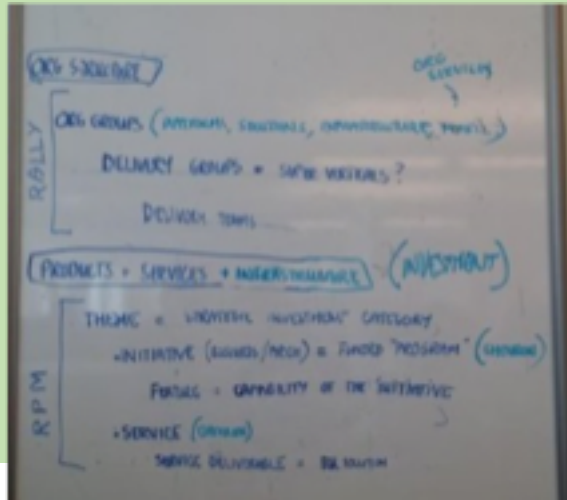 ORG STRUCTURE
ORG SERVICES
RALLY
ORG GROUPS (PLATFORMS, SOLUTIONS, INFRASTRUCTURE,
DELIVERY GROUPS = SUPER VERTICALS?
DELIVERY TEAMS
PRODUCTS + SERVICES + INFRASTRUCTURE (INVESTMENT)
RPM
THEME = STRATEGIC INVESTMENT CATEGORY
• INITIATIVE = FUNDED "PROGRAM"
FEATURE = CAPABILITY OF THE INITIATIVE
• SERVICE
SERVICE DELIVERABLE =